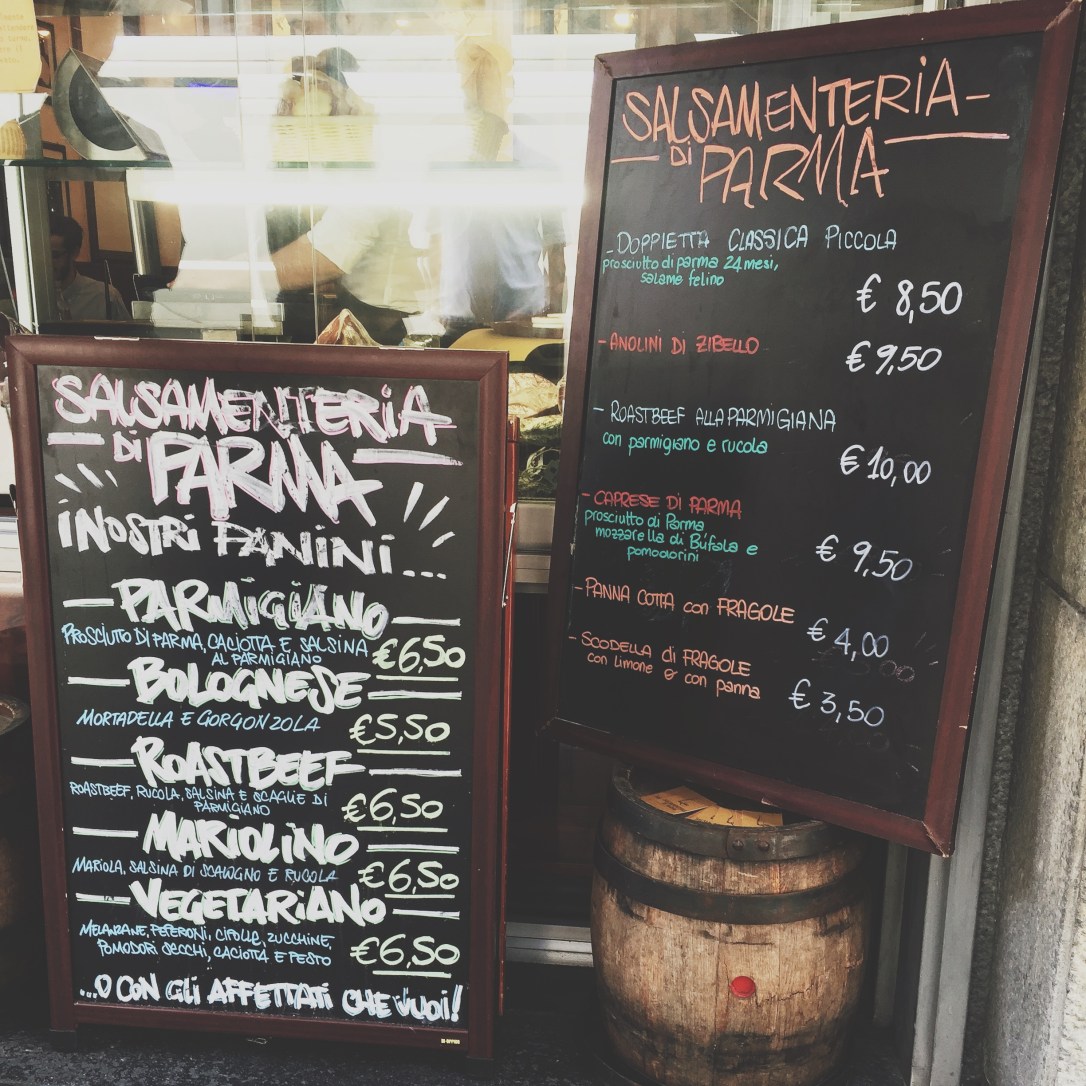 SALSAMENTERIA
DI PARMA
i NOSTRI PANINI...
PARMIGIANO
PROSCIUTO DI PARMA, CACIOTTA E SALSINA
AL PARMIGIANO
€6,50
BOLOGNESE
MORTADELLA E GORGONZOLA
€5,50
ROASTBEEF
ROASTBEEF, RUCOLA, SALSINA E SCAGLIE DI
PARMIGIANO
€6,50
MARIOLINO
MARIOLA, SALSINA DI SCALOGNO E RUCOLA
€6,50
VEGETARIANO
MELANZANE, PEPERONI, CIPOLLE, ZUCCHINE,
POMODORI SECCHI, CACIOTTA E PESTO
€6,50
...O CON GLI AFFETTATI CHE VUOI!
SALSAMENTERIA
DI PARMA
- DOPPIETTA CLASSICA PICCOLA
prosciutto di parma 24 mesi,
salame felino
€ 8,50
- ANOLINI DI ZIBELLO
€ 9,50
- ROASTBEEF ALLA PARMIGIANA
con parmigiano e rucola
€ 10,00
- CAPRESE DI PARMA
prosciutto di Parma
mozzarella di Bufala e
pomodorini
€ 9,50
- PANNA COTTA con FRAGOLE
€ 4,00
- SCODELLA di FRAGOLE
con limone e con panna
€ 3,50